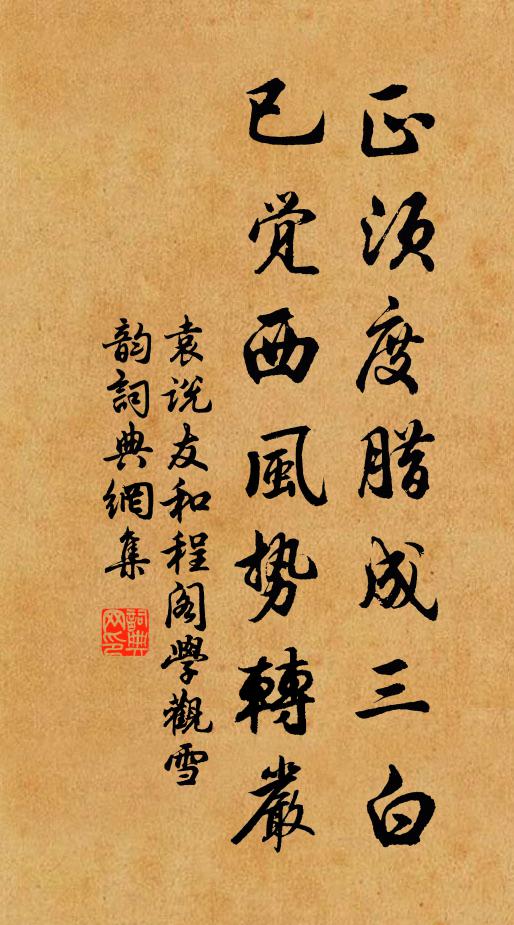 正须度腊成三白
已觉西風势轉嚴
袁说友和程阁學觀雪
韵詞典網集
詞典
网印